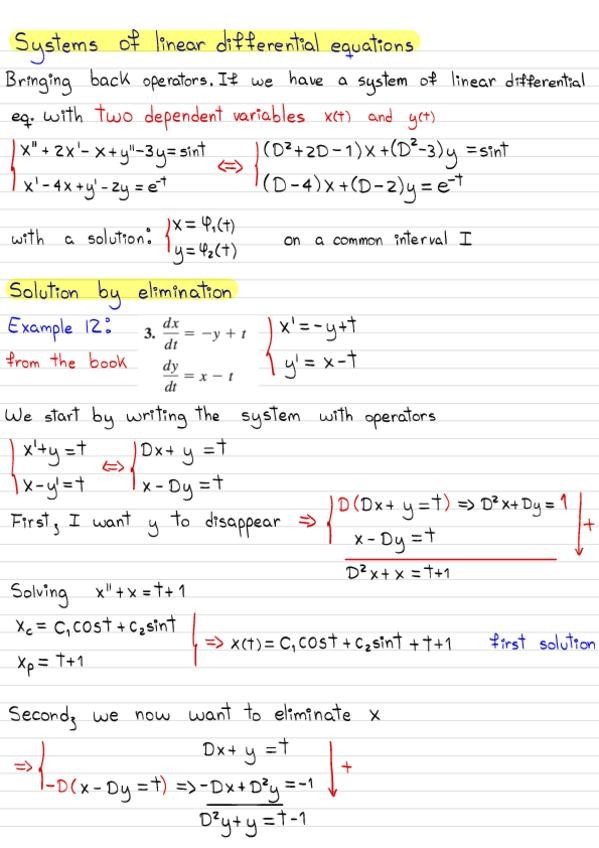 Systems of linear differential equations
Bringing back operators. If we have a system of linear differential
eq. with two dependent variables x(t) and y(t)
x''+2x'-x+y''-3y=sint ⇔ (D²+2D-1)x+(D²-3)y=sint
x'-4x+y'-2y=e^-t (D-4)x+(D-2)y=e^-t
with a solution: x=φ₁(t)
y=φ₂(t) on a common interval I
Solution by elimination
Example 12: 3. dx/dt = -y + t x'=-y+t
from the book dy/dt = x - t y'=x-t
We start by writing the system with operators
x'+y=t ⇔ Dx+y=t
x-y'=t x-Dy=t
First, I want y to disappear ⇒ D(Dx+y=t) ⇒ D²x+Dy=1
x-Dy=t +
D²x+x=t+1
Solving x''+x=t+1
x_c=C₁cost+C₂sint
x_p=t+1 ⇒ x(t)=C₁cost+C₂sint+t+1 first solution
Second, we now want to eliminate x
⇒ Dx+y=t
-D(x-Dy=t) ⇒ -Dx+D²y=-1 +
D²y+y=t-1